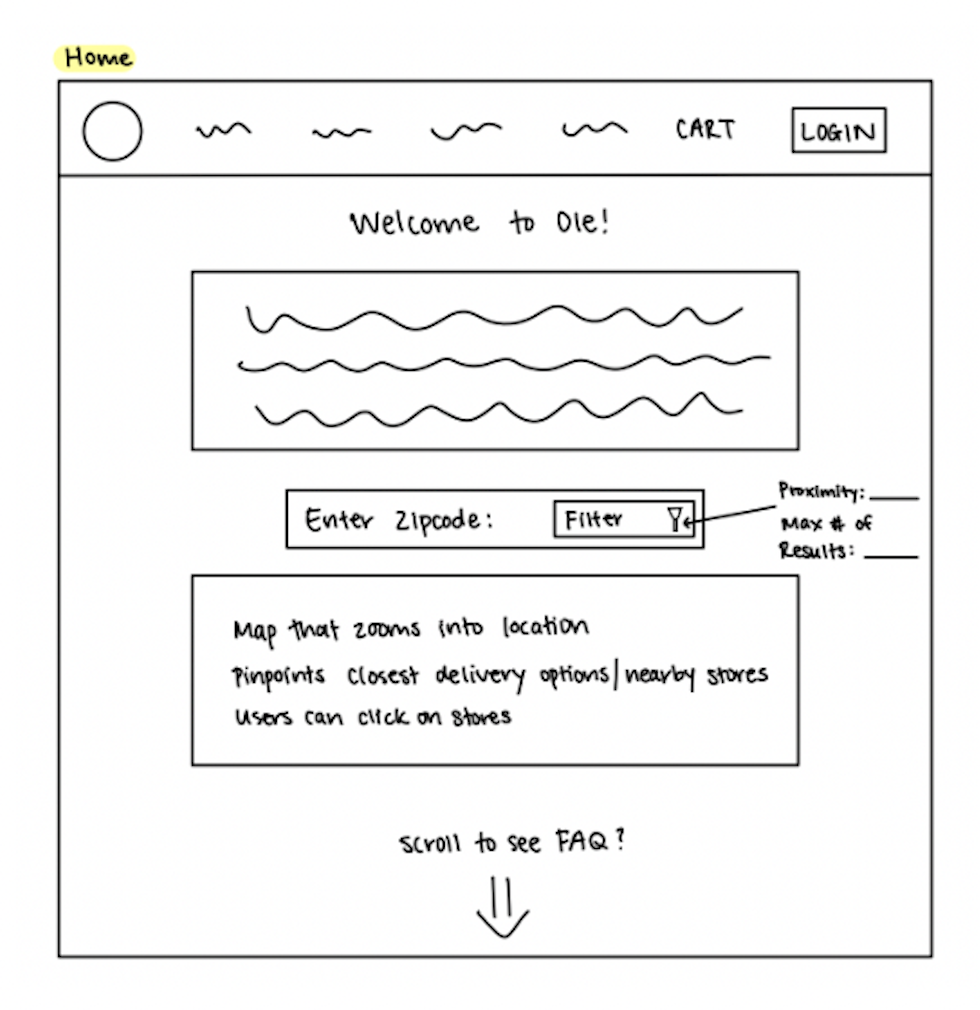 Home
CART
LOGIN
Welcome to Ole!
Enter Zipcode:
Filter
Proximity:
Max # of
Results:
Map that zooms into location
Pinpoints closest delivery options/nearby stores
Users can click on stores
Scroll to see FAQ?